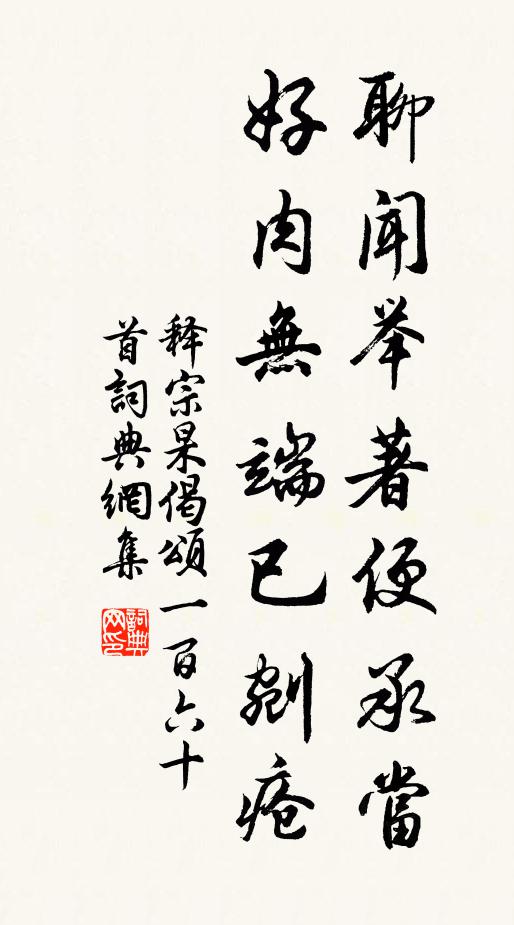 聊闻举著便承當
好肉無端已剜瘡
释宗杲偈頌一百六十
首詞典網集
詞典网印